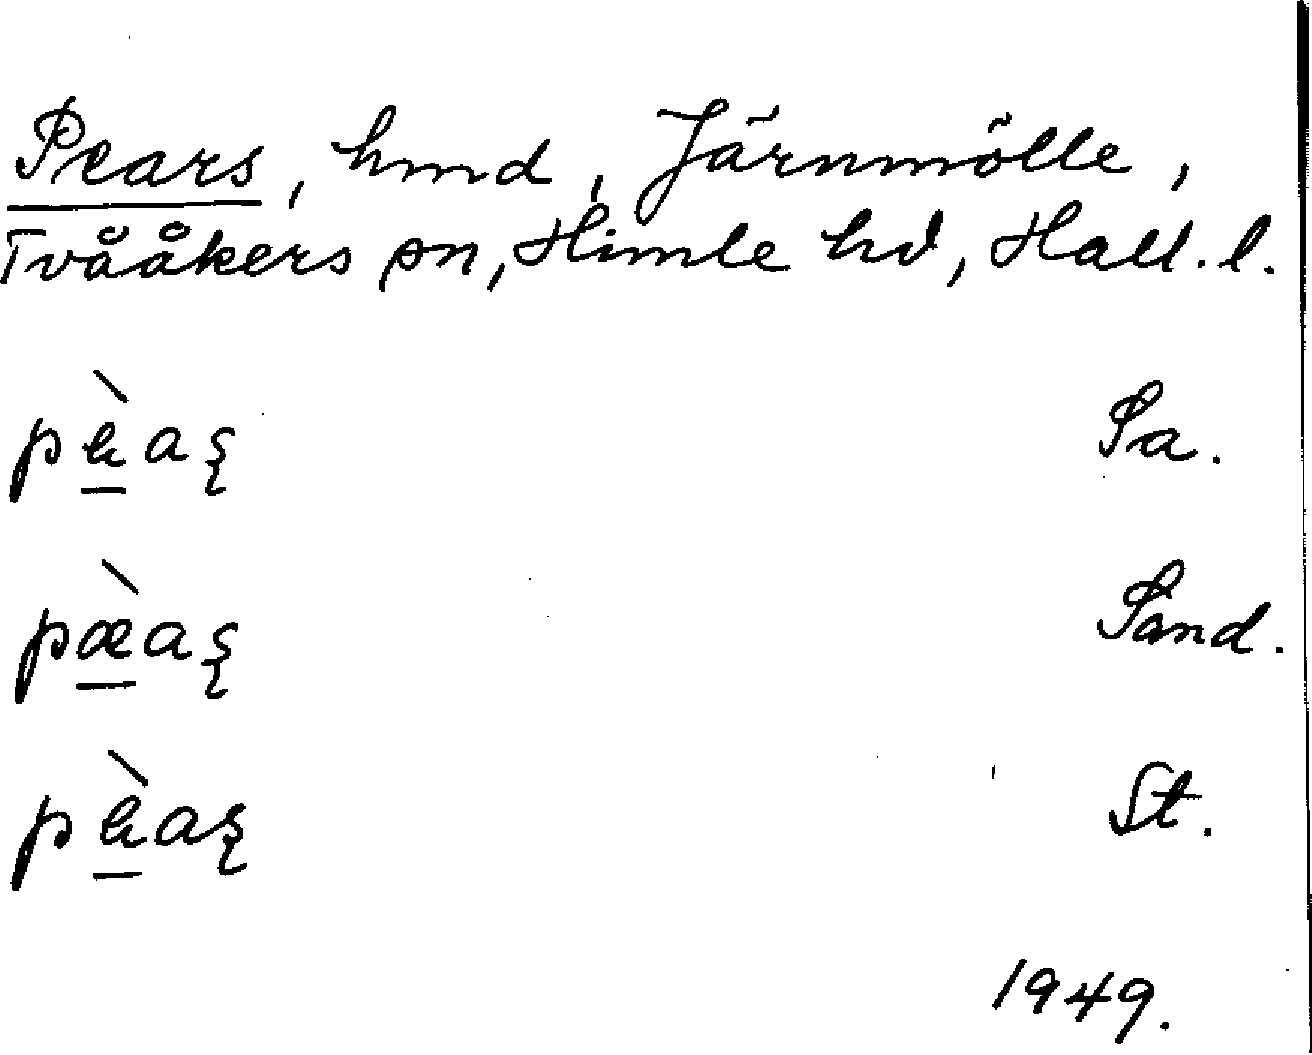 Pears, hmd, Järnmölle,
Tvååkers sn, Himle hd, Hall. l.
pàas̨ Sa.
pæ̀as̨ Sand.
pàas̨ St.
1949.